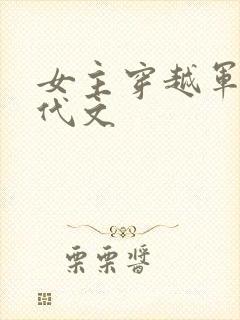 女主穿越軍
代文
栗栗醬